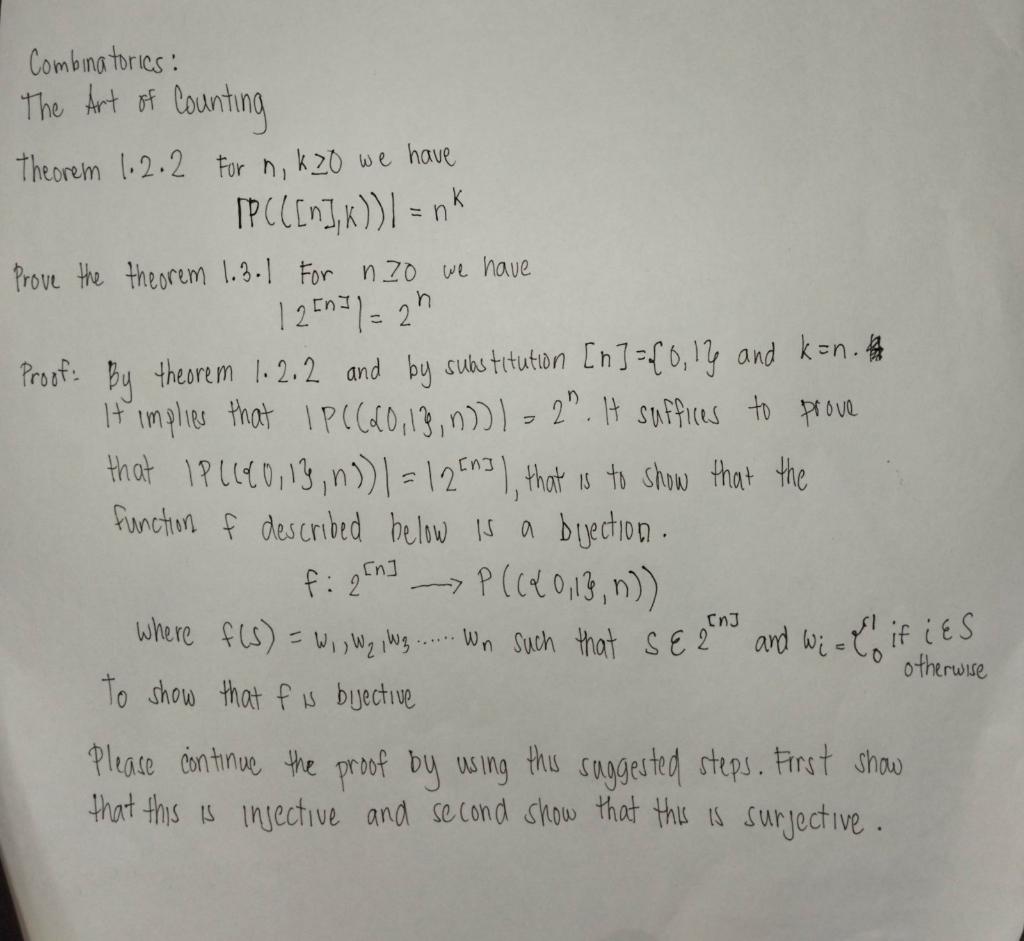 Combinatorics:
The Art of Counting
Theorem 1.2.2 For n, k≥0 we have
|P(([n],k))| = n^k
Prove the theorem 1.3.1 For n≥0 we have
|2^[n]| = 2^n
Proof: By theorem 1.2.2 and by substitution [n]={0,1} and k=n.
It implies that |P(({0,1},n))| = 2^n. It suffices to prove
that |P(({0,1},n))| = |2^[n]|, that is to show that the
function f described below is a bijection.
f: 2^[n] → P(({0,1},n))
where f(s) = w₁,w₂,w₃......wn such that S ∈ 2^[n] and wi = { 1 if i∈S
0 otherwise
To show that f is bijective
Please continue the proof by using this suggested steps. First show
that this is injective and second show that this is surjective.